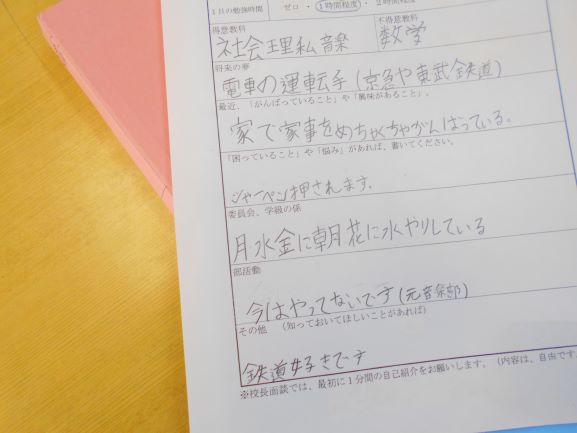 1日の勉強時間 ゼロ ・ 1時間程度 ・ 2時間程度
得意教科 不得意教科
社会 理科 音楽 数学
将来の夢
電車の運転手(京急や東武鉄道)
最近、「がんばっていること」や「興味があること」。
家で家事をめちゃくちゃがんばっている。
「困っていること」や「悩み」があれば、書いてください。
シャーペン押されます。
委員会、学級の係
月水金に朝花に水やりしている
部活動
今はやってないです(元音楽部)
その他 (知っておいてほしいことがあれば)
鉄道好きです
※校長面談では、最初に1分間の自己紹介をお願いします。(内容は、自由です